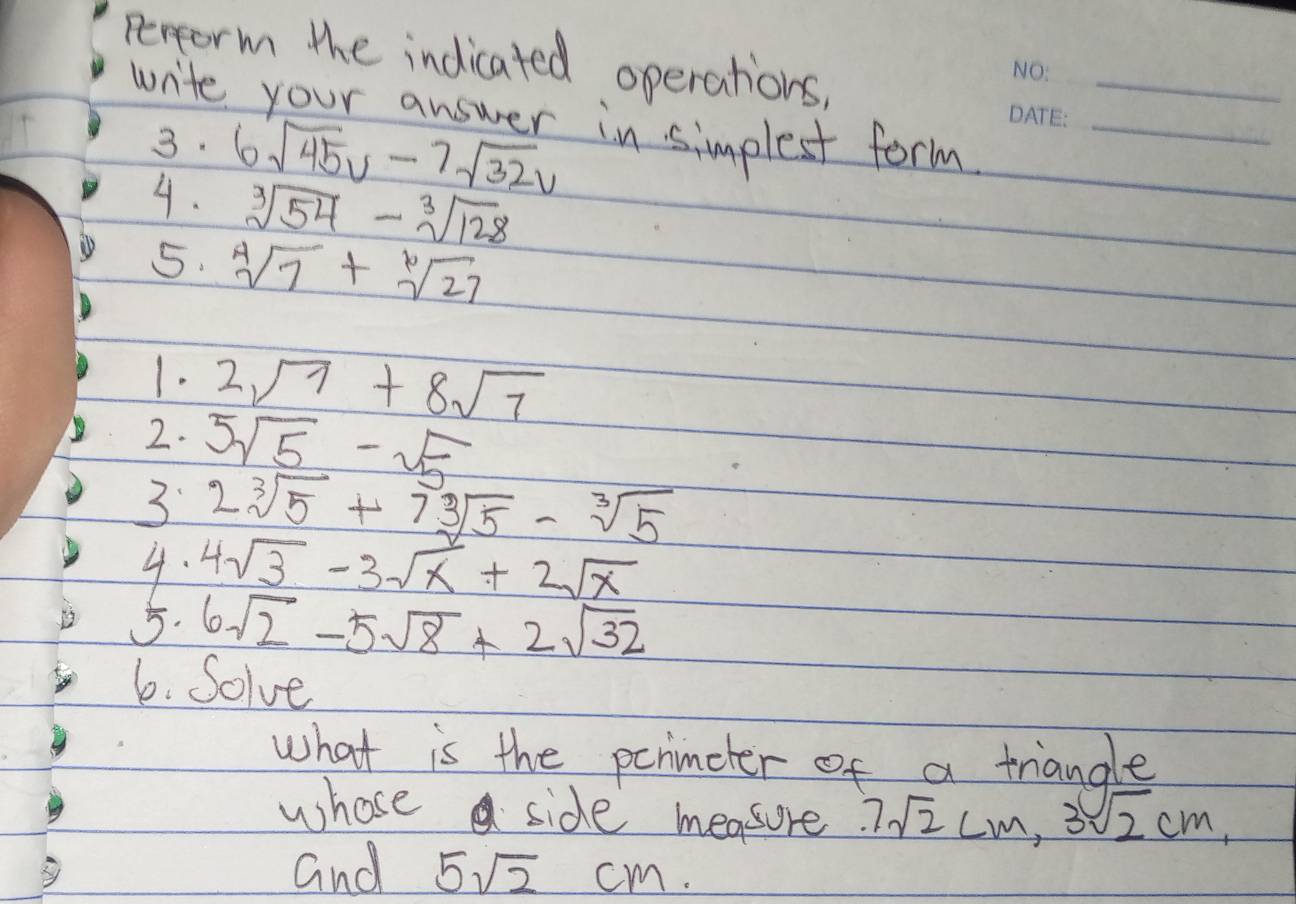 Perform the indicated operations,
NO:
write your answer in simplest form.
DATE:
3. 6√45v - 7√32v
4. ∛54 - ∛128
5. ∜7 + ∜27
1. 2√7 + 8√7
2. 5√5 - √5
3. 2∛5 + 7∛5 - ∛5
4. 4√3 - 3√x + 2√x
5. 6√2 - 5√8 + 2√32
6. Solve
what is the perimeter of a triangle
whose a side measure 7√2 cm, 3√2 cm,
and 5√2 cm.